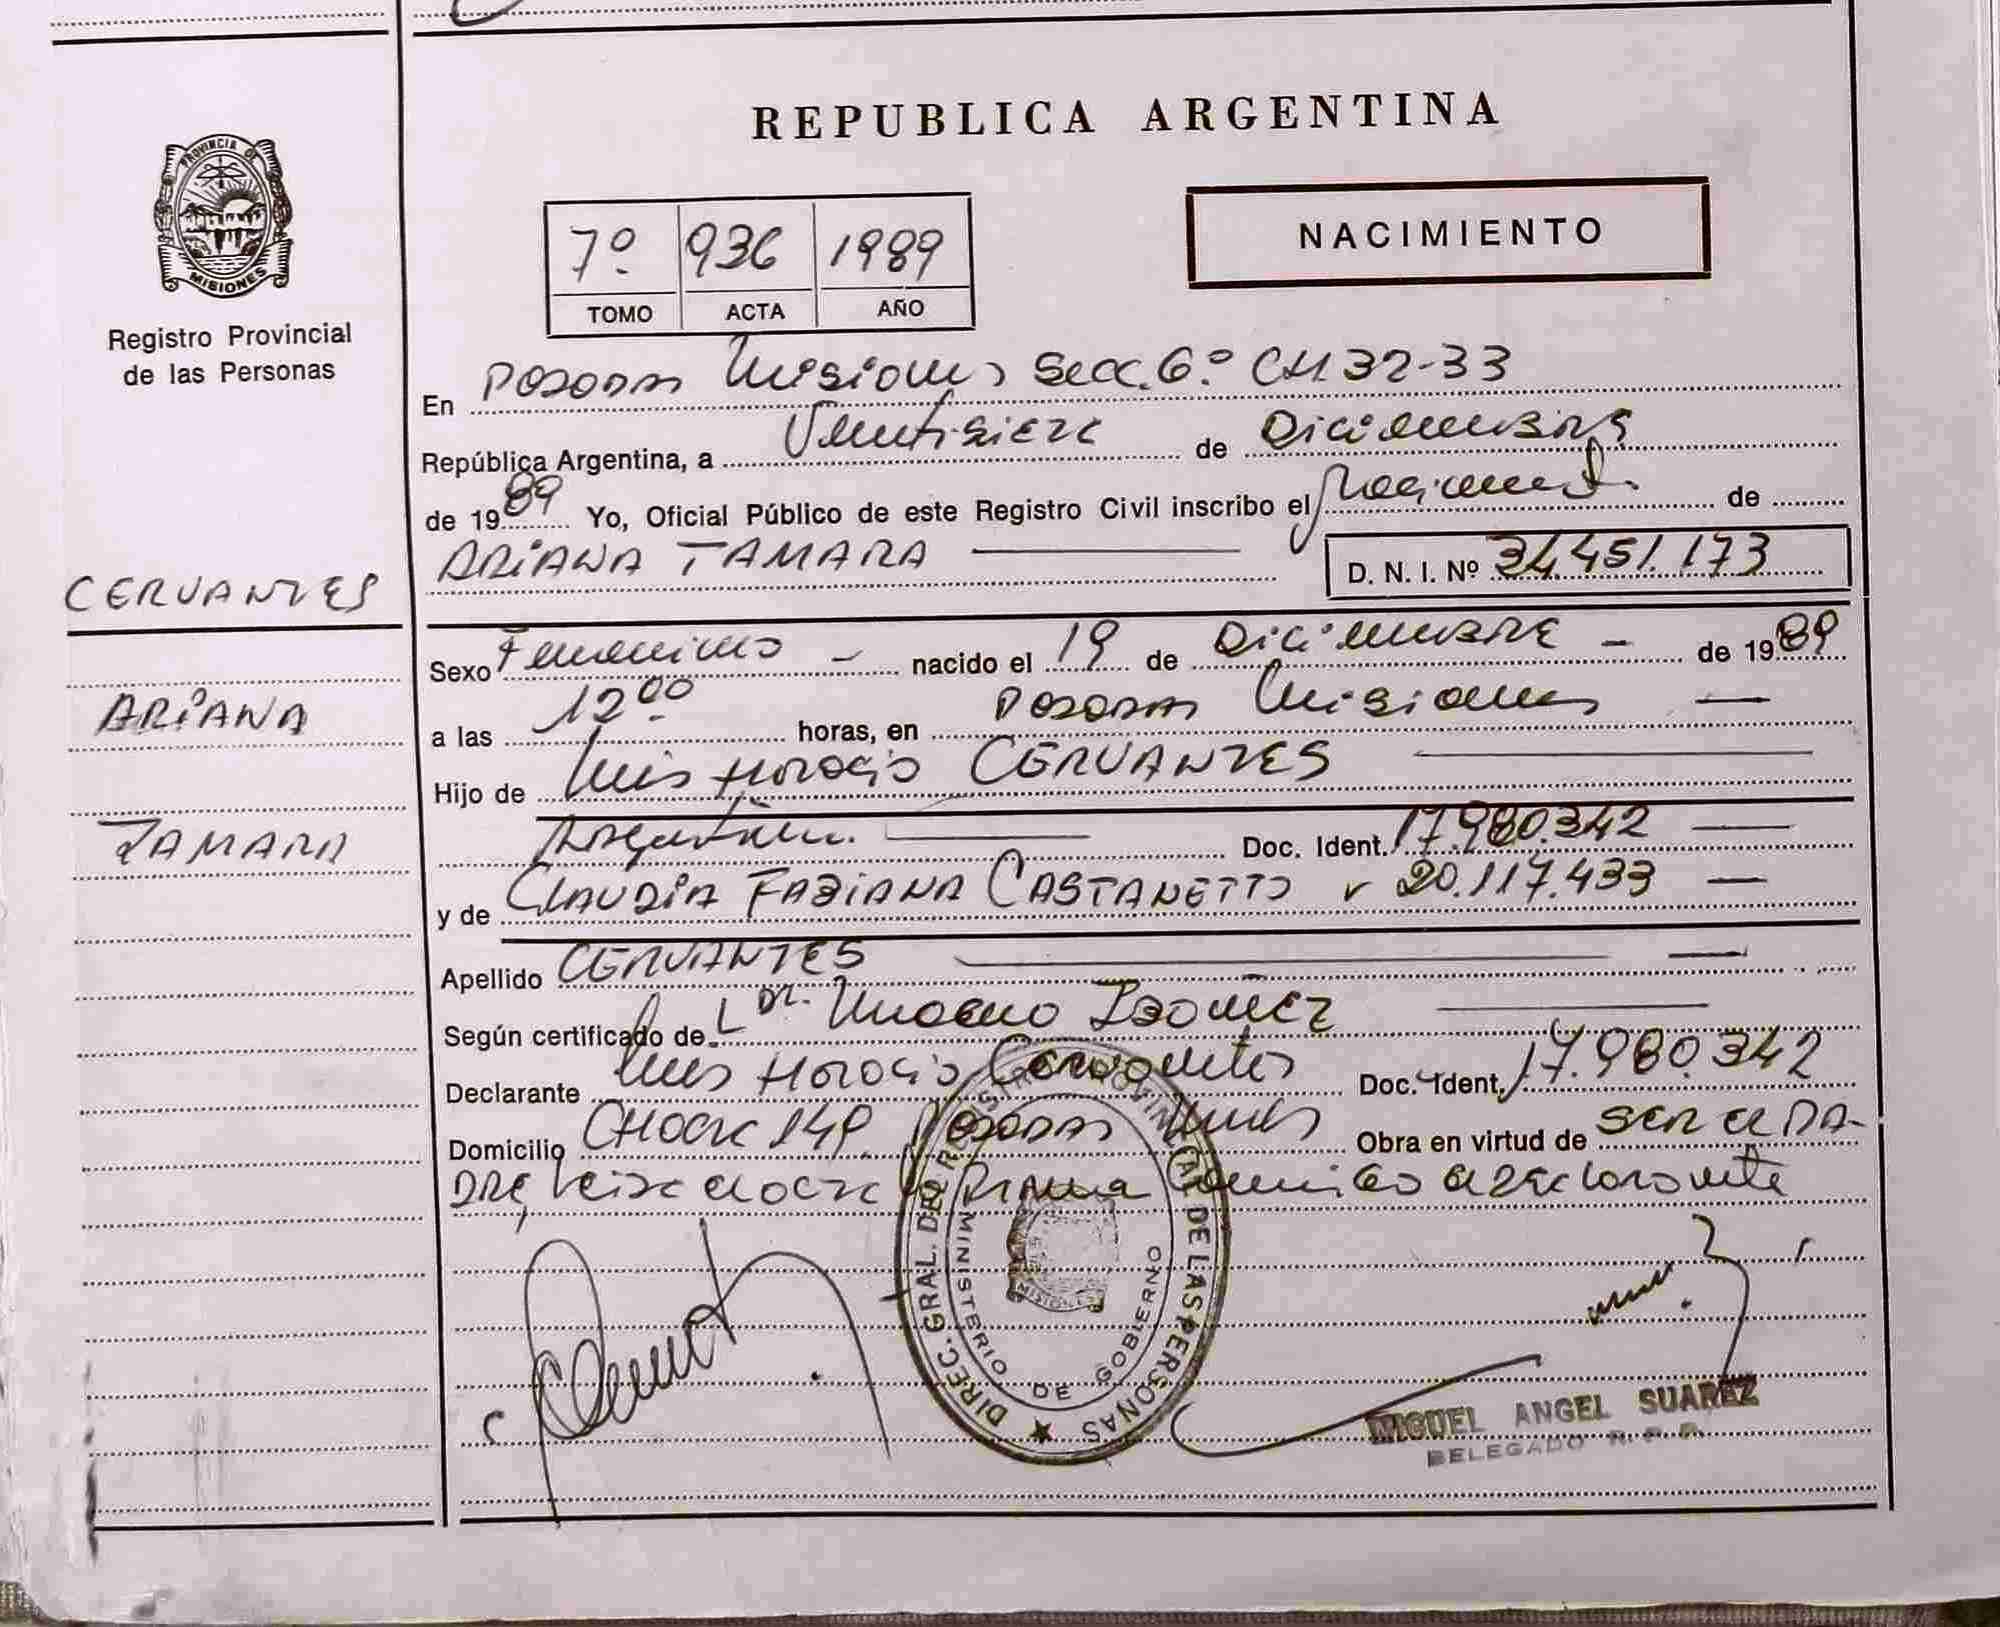 REPUBLICA ARGENTINA
PROVINCIA DE
MISIONES
Registro Provincial
de las Personas
NACIMIENTO
7º 936 1989
TOMO ACTA AÑO
En Posadas Misiones Secc. 6º CH 32-33
República Argentina, a Veintisiete de Diciembre
de 1989 Yo, Oficial Público de este Registro Civil inscribo el Nacimiento de
ARIANA TAMARA
D. N. I. Nº 34.451.173
CERVANTES
ARIANA
TAMARA
Sexo Femenino nacido el 19 de Diciembre de 1989
a las 12 00 horas, en Posadas Misiones
Hijo de Luis Horacio CERVANTES
Argentino. Doc. Ident. 17.980.342
y de CLAUDIA FABIANA CASTANETTO 20.117.433
Apellido CERVANTES
Según certificado de Dr.
Declarante Luis Horacio Cervantes Doc. Ident. 17.980.342
Domicilio 149 Posadas Mnes Obra en virtud de ser el PA-
DRE, el acta declarante
DIREC. GRAL. DEL REGISTRO PROVINCIAL DE LAS PERSONAS
MINISTERIO DE GOBIERNO
MISIONES
MIGUEL ANGEL SUAREZ
DELEGADO R. P. P.